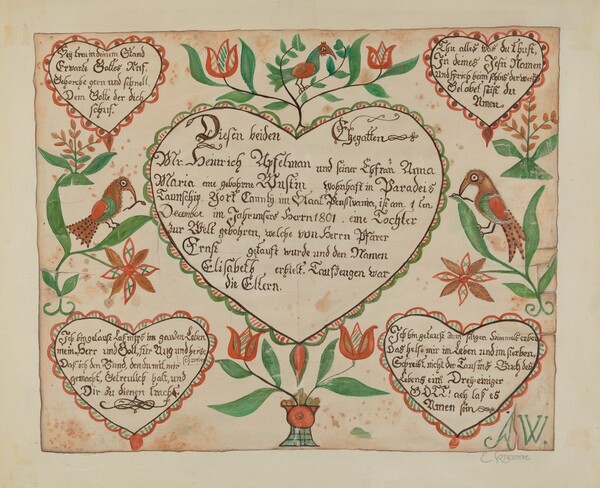 Sey treu in deinem Stand
Erwarte Gottes Ruf,
Gehorche gern und schnell,
Dem Gotte der dich
schuf.
Thu alles was du thust,
In deines Jesu Namen
Und sprich beim der werck
Gelobet seist du
Amen.
Diesen beiden Ehegatten
Mr. Heinrich Apfelman und seiner Anna
Maria eine gebohrne Wustin wohnhaft in Paradeis
Taunschip, York Caunty im Staat ist am 1 ten
December im Jahr unsers Herrn 1801. eine Tochter
zur Welt gebohren, welche von Herrn Pfarer
Ernst getauft wurde und den Namen
Elisabeth erhielt. Taufzeugen war
die Eltern.
Ich bin getauft Las mirs im gantzen Leben
mein Herr und Gott, für Aug und hertz
schweben
Das ich den Bund, den du mit mir
gemacht, Getreulich halt, und
Dir zu dienen tracht.
Ich bin getauft zum
Das helfe mir im Leben und im sterben,
Schreibst nicht der Tauf ins Buch des
Lebens ein! Drey-einiger
GOTT! ach las es
Amen sein
A W.